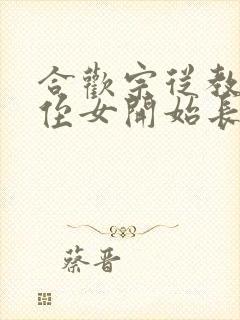 合歡宗從教
侄女開始長
蔡晋